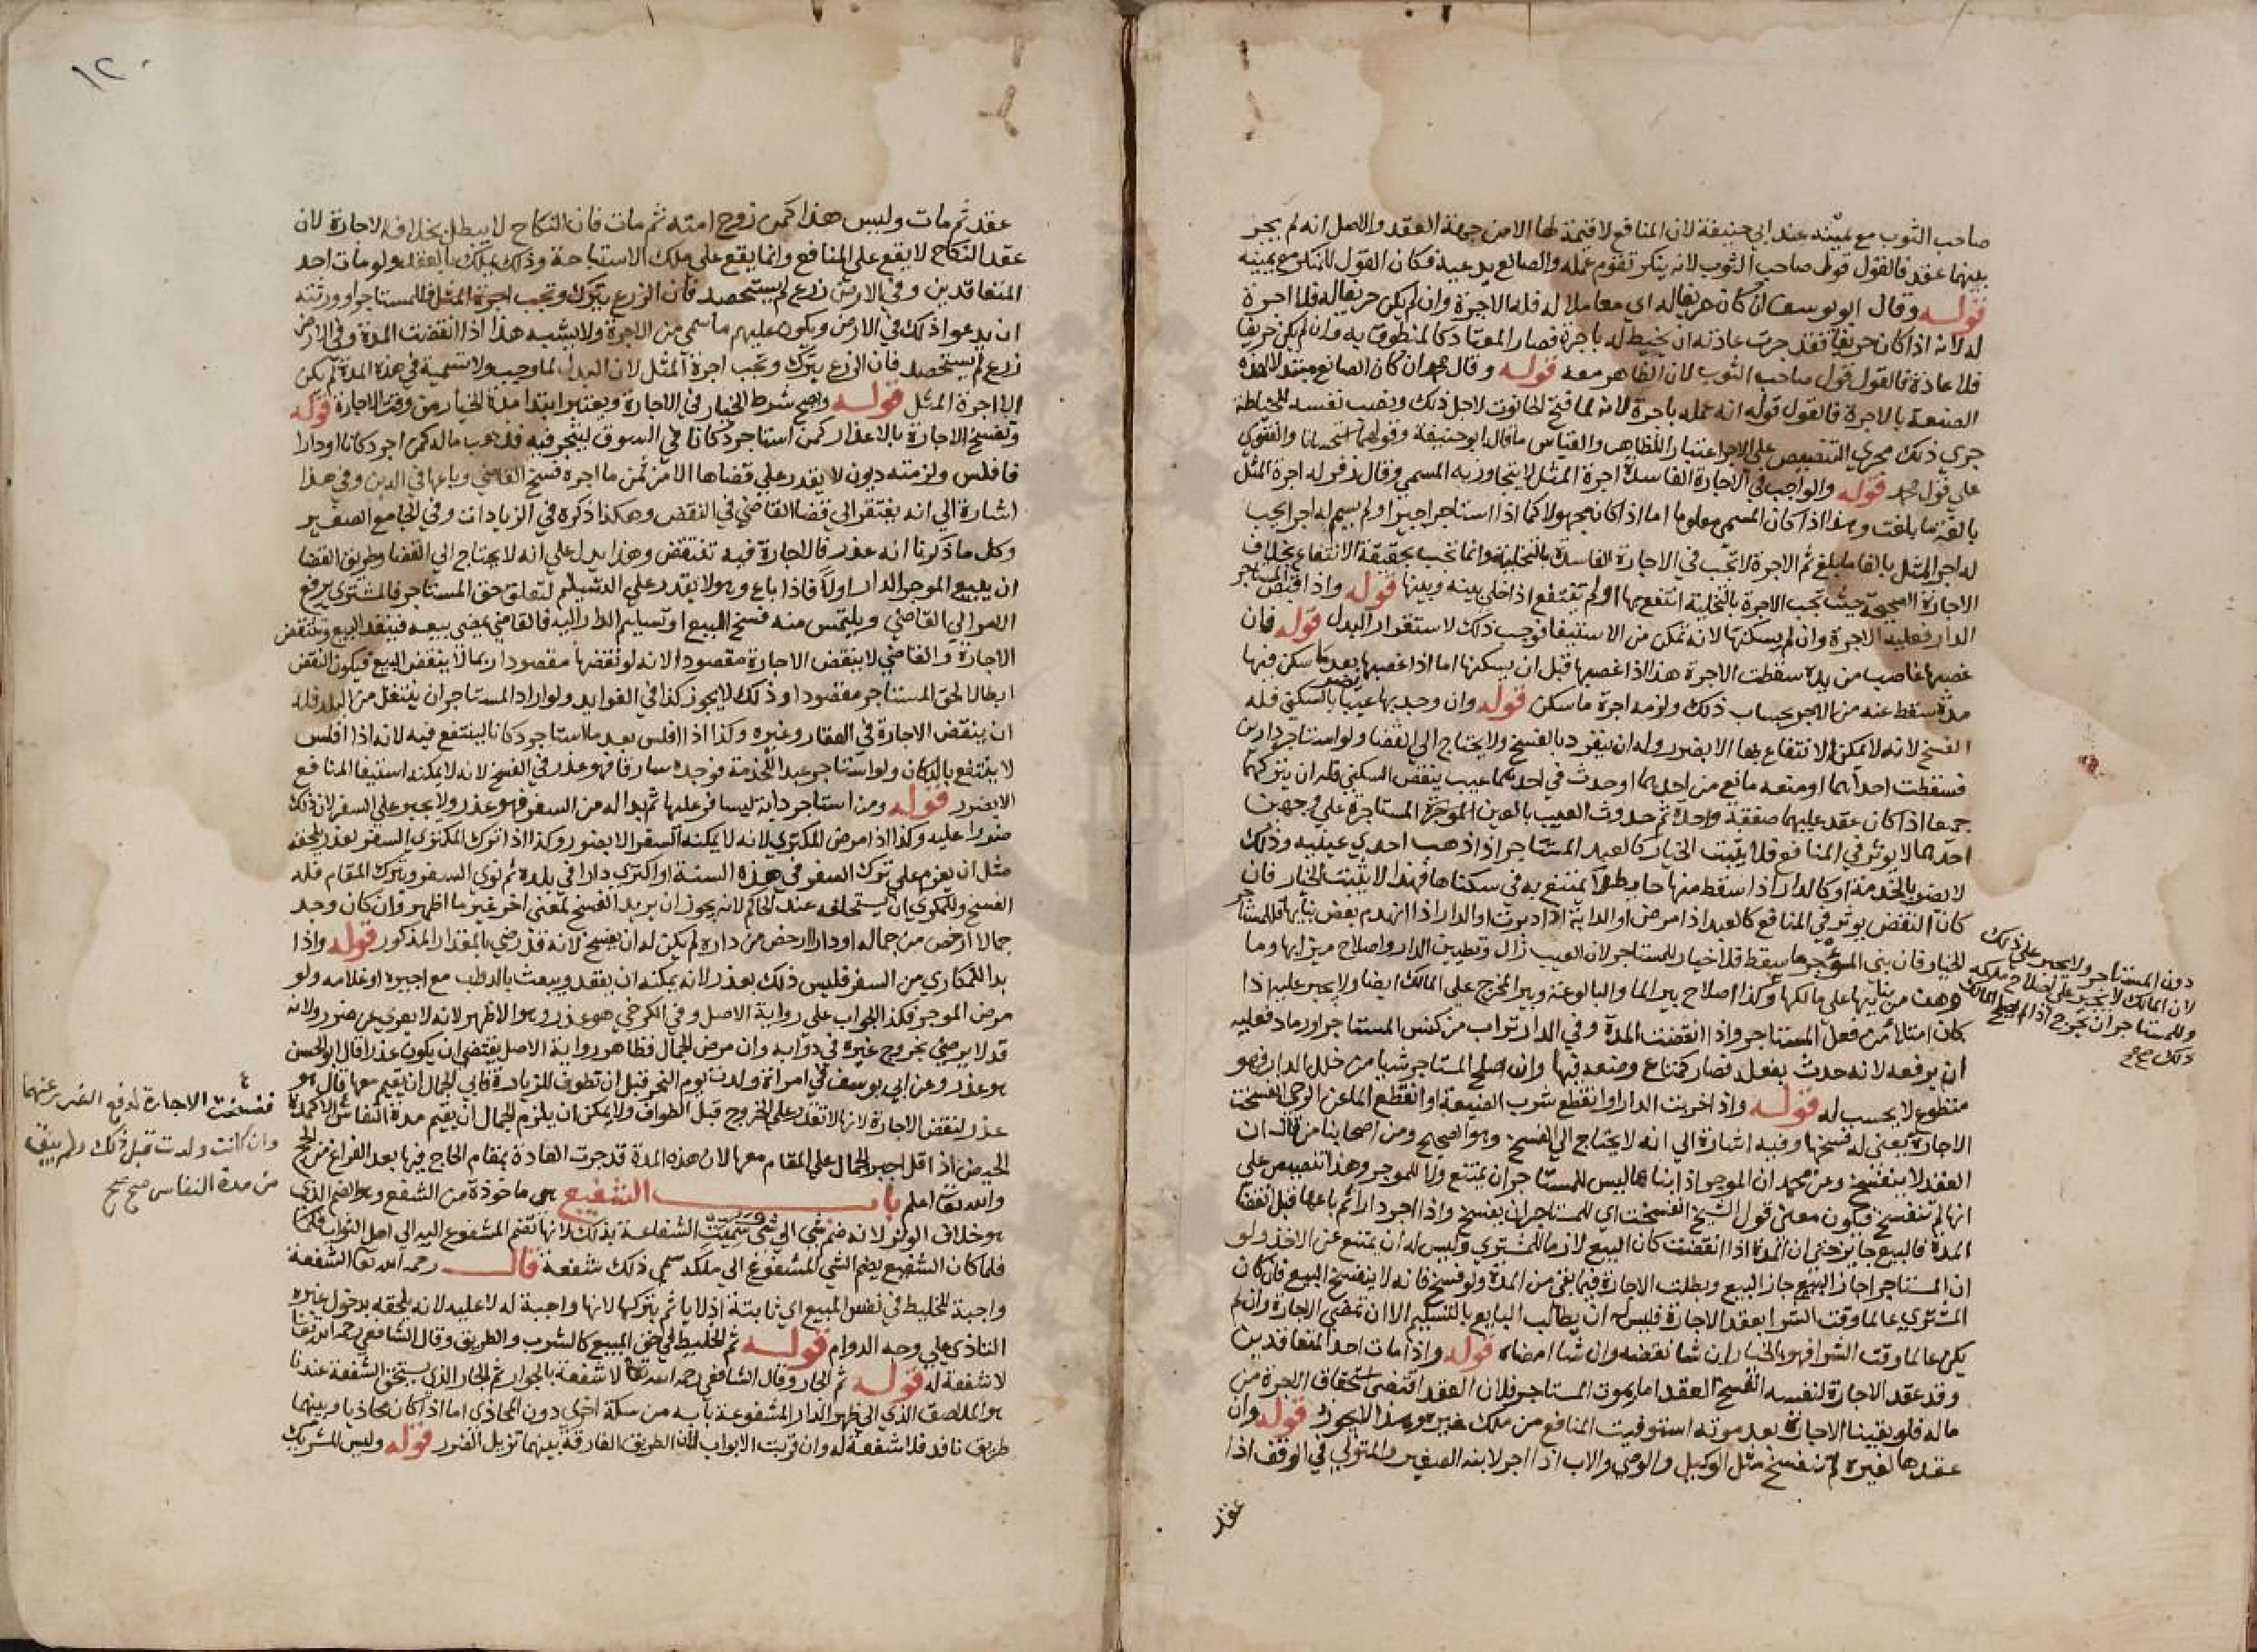 صاحب الثوب مع يمينه عند ابي حنيفة لان المنافع لا قيمة لها الا من جهة العقد والاصل انه لم يجز
بينهما عقد فالقول قول صاحب الثوب لانه ينكر تقوم عمله والصانع يدعيه فكان القول للمنكر مع يمينه
قوله وقال ابو يوسف ان كان حريفا له اي معاملا له فله الاجرة وان لم يكن حريفا له فلا اجرة
له لانه اذا كان حريفا فقد جرت عادته ان يخيط له باجرة فصار المعتاد كالمنطوق به وان لم يكن حريفا
فلا عادة فالقول قول صاحب الثوب لان الظاهر معه قوله وقال محمد ان كان الصانع مبتدلا لهذه
الصنعة بالاجرة فالقول قوله انه عمله باجرة لانه لما فتح الحانوت لاجل ذلك ونصب نفسه للخياطة
جرى ذلك مجرى التنصيص على الاجر اعتبارا للظاهر والقياس ما قاله ابو حنيفة وقولهما استحسانا والفتوى
على قول محمد قوله والواجب في الاجارة الفاسدة اجرة المثل لا يتجاوز به المسمى وقال زفر له اجرة المثل
بالغة ما بلغت وهذا اذا كان المسمى معلوما اما اذا كان مجهولا كما اذا استاجر اجيرا ولم يسم له اجرا يجب
له اجر المثل بالغا ما بلغ ثم الاجرة لا تجب في الاجارة الفاسدة بالتخلية وانما تجب بحقيقة الانتفاع بخلاف
الاجارة الصحيحة حيث تجب الاجرة بالتخلية انتفع بها او لم تنتفع اذا خلى بينه وبينها قوله واذا قبض المستاجر
الدار فعليه الاجرة وان لم يسكنها لانه تمكن من الاستيفا فوجب ذلك لاستقرار البدل قوله فان
غصبها غاصب من يده سقطت الاجرة هذا اذا غصبها قبل ان يسكنها اما اذا غصبها بعد ما سكن فيها
مدة سقط عنه من الاجر بحساب ذلك ولزمه اجرة ما سكن قوله وان وجد بها عيبا يضر بالسكنى فله
الفسخ لانه لا يمكن الانتفاع بها الا بضرر وله ان ينفرد بالفسخ ولا يحتاج الى القضا ولو استاجر دارين
فسقطت احداهما او منعه مانع من احديهما او حدث في احديهما عيب ينقص السكنى فله ان يتركهما
جميعا اذا كان عقد عليهما صفقة واحدة ثم حدوث العيب بالعين الموجرة المستاجرة على وجهين
احدهما لا يوثر في المنافع فلا يثبت الخيار كالعبد المستاجر اذا ذهب احدى عينيه وذلك
لا يضر بالخدمة او كالدار اذا سقط منها حايط لا ينتفع به في سكناها فهذا لا يثبت الخيار فان
كان النقض يوثر في المنافع كالعبد اذا مرض او الدابة اذا دبرت او الدار اذا انهدم بعض بنايها فللمستاجر
الخيار فان بنى الموجر ما سقط فلا خيار للمستاجر لان العيب زال وتطيين الدار واصلاح ميزابها وما
وهت من بنايها على مالكها وكذا اصلاح بير الما والبالوعة وبير المخرج على المالك ايضا ولا يجبر عليه اذا
كان امتلا من فعل المستاجر واذا انقضت المدة وفي الدار تراب من كنس المستاجر او رماد فعليه
ان يرفعه لانه حدث بفعله فصار كمتاع وضعه فيها وان اصلح المستاجر شيا من خلل الدار فهو
متطوع لا يحسب له قوله واذا خربت الدار او انقطع شرب الضيعة او انقطع الما عن الرحى انفسخت
الاجارة يعنى له فسخها وفيه اشارة الى انه لا يحتاج الى الفسخ وهو الصحيح ومن اصحابنا من قال ان
العقد لا ينفسخ وعن محمد ان الموجر اذا بناها ليس للمستاجر ان يمتنع ولا للموجر وهذا تنصيص على
انها لم تنفسخ فيكون معنى قول الشيخ انفسخت اي للمستاجر ان يفسخ واذا اجر دارا ثم باعها قبل انقضا
المدة فالبيع جايز حتى ان المدة اذا انقضت كان البيع لازما للمشتري وليس له ان يمتنع عن الاخذ ولو
ان المستاجر اجاز البيع جاز البيع وبطلت الاجارة فيما بقى من المدة ولو فسخ فانه لا ينفسخ البيع فان كان
المشترى عالما وقت الشرا بعقد الاجارة فليس له ان يطالب البايع بالتسليم الا ان تمضى الاجارة وان لم
يكن عالما وقت الشرا فهو بالخيار ان شا نقضه وان شا امضاه قوله واذا مات احد المتعاقدين
وقد عقد الاجارة لنفسه انفسخ العقد اما بموت المستاجر فلان العقد اقتضى استحقاق الاجرة من
ماله فلو بقينا الاجارة بعد موته استوفيت المنافع من ملك غيره وهذا لا يجوز قوله وان
عقدها لغيره لم تنفسخ مثل الوكيل والوصي والاب اذا اجر لابنه الصغير والمتولي في الوقف اذا
عقد
دون المستاجر ولا يجبر على ذلك
لان المالك لا يجبر على اصلاح ملكه
وللمستاجر ان يخرج اذا لم يصلح المالك
ذلك صح
١٢٠
عقد ثم مات وليس هذا كمن زوج امته ثم مات فان النكاح لا يبطل بخلاف الاجارة لان
عقد النكاح لا يقع على المنافع وانما يقع على ملك الاستباحة وذلك يملك بالعقد ولو مات احد
المتعاقدين وفي الارض زرع لم يستحصد فان الزرع يترك وتجب اجرة المثل فللمستاجر او ورثته
ان يدعوا ذلك في الارض ويكون عليهم ما سمى من الاجرة ولا يشبه هذا اذا انقضت المدة وفي الارض
زرع لم يستحصد فان الزرع يترك وتجب اجرة المثل لان البدل لما وجب ولا تسمية في هذه المدة لم يكن
الا اجرة المثل قوله ويصح شرط الخيار في الاجارة ويعتبر ابتدا مدة الخيار من وقت الاجارة قوله
وتفسخ الاجارة بالاعذار كمن استاجر دكانا في السوق ليتجر فيه فذهب ماله كمن اجر دكانا او دارا
فافلس ولزمته ديون لا يقدر على قضاها الا من ثمن ما اجره فسخ القاضي وباعها في الدين وفي هذا
اشارة الى انه يفتقر الى قضا القاضي في النقض وهكذا ذكره في الزيادات وفي الجامع الصغير
وكل ما ذكرنا انه عذر فالاجارة فيه تنتقض وهذا يدل على انه لا يحتاج الى القضا وطريق القضا
ان يبيع الموجر الدار اولا فاذا باع وهو لا يقدر على التسليم لتعلق حق المستاجر فالمشترى يرفع
الامر الى القاضي ويلتمس منه فسخ البيع او تسليم الدار اليه فالقاضي يمضى بيعه فينفذ البيع وتنتقض
الاجارة والقاضي لا ينقض الاجارة مقصودا لانه لو نقضها مقصودا ربما لا ينقض البيع فيكون النقض
ابطالا لحق المستاجر مقصودا وذلك لا يجوز كذا في الفوايد ولو اراد المستاجر ان ينتقل من البلد فله
ان ينقض الاجارة في العقار وغيره وكذا اذا افلس بعد ما استاجر دكانا لينتفع فيه لانه اذا افلس
لا ينتفع بالدكان ولو استاجر عبدا للخدمة فوجده سارقا فهو عذر في الفسخ لانه لا يمكنه استيفا المنافع
الا بضرر قوله ومن استاجر دابة ليسافر عليها ثم بدا له من السفر فهو عذر ولا يجبر على السفر لان ذلك
ضررا عليه وكذا اذا مرض المكتري لانه لا يمكنه السفر الا بضرر وكذا اذا ترك المكترى السفر لعذر يلحقه
مثل ان يعزم على ترك السفر في هذه السنة او اكترى دارا في بلدة ثم نوى السفر وترك المقام فله
الفسخ وللمكري ان يستحلفه عند الحاكم لانه يجوز ان يريد الفسخ لمعنى اخر غير ما اظهر وان كان وجد
جمالا ارخص من جماله او دارا ارخص من داره لم يكن له ان يفسخ لانه قد رضي بالمقدار المذكور قوله واذا
بدا للمكاري من السفر فليس ذلك بعذر لانه يمكنه ان يقعد ويبعث بالدواب مع اجيره او غلامه ولو
مرض الموجر فكذا الجواب على رواية الاصل وفي الكرخي هو عذر وهو الاظهر لانه لا يعرى عن ضرر ولانه
قد لا يرضى بخروج غيره في دوابه وان مرض الجمال فظاهر رواية الاصل يقتضي ان يكون عذرا قال ابو الحسن
هو عذر وعن ابي يوسف في امراة ولدت يوم النحر قبل ان تطوف للزيارة فابى الجمال ان يقيم معها قال هو
عذر لنقض الاجارة لانها لا تقدر على الخروج قبل الطواف ولا يمكن ان يلزم الجمال ان يقيم مدة النفاس الا كمدة
الحيض او اقل اجبر الجمال على المقام معها لان هذه المدة قد جرت العادة بمقام الحاج فيها بعد الفراغ من الحج
والله تعا اعلم باب الشفيع هي ماخوذة من الشفع وهو الضم الذي
هو خلاف الوتر لانه ضم شي الى شي وسميت الشفاعة بذلك لانها تضم المشفوع اليه الى اهل الثواب
فلما كان الشفيع يضم الشي المشفوع الى ملكه سمي ذلك شفعة قال رحمه الله تعا الشفعة
واجبة للخليط في نفس المبيع اي ثابتة اذ لا ياثم بتركها لانها واجبة له لا عليه لانه يلحقه بدخول غيره
التاذى على وجه الدوام قوله ثم للخليط في حق المبيع كالشرب والطريق وقال الشافعي رحمه الله تعا
لا شفعة له قوله ثم للجار وقال الشافعي رحمه الله تعا لا شفعة بالجوار ثم الجار الذي يستحق الشفعة عندنا
هو الملاصق الذي الى ظهر الدار المشفوعة بابه من سكة اخرى دون المحاذى اما اذا كان محاذيا وبينهما
طريق نافذ فلا شفعة له وان قربت الابواب لان الطريق الفارقة بينهما تزيل الضرر قوله وليس للشريك
فسخت الاجارة لدفع الضرر عنهما
وان كانت ولدت قبل ذلك ولم يبق
من مدة النفاس صح صح